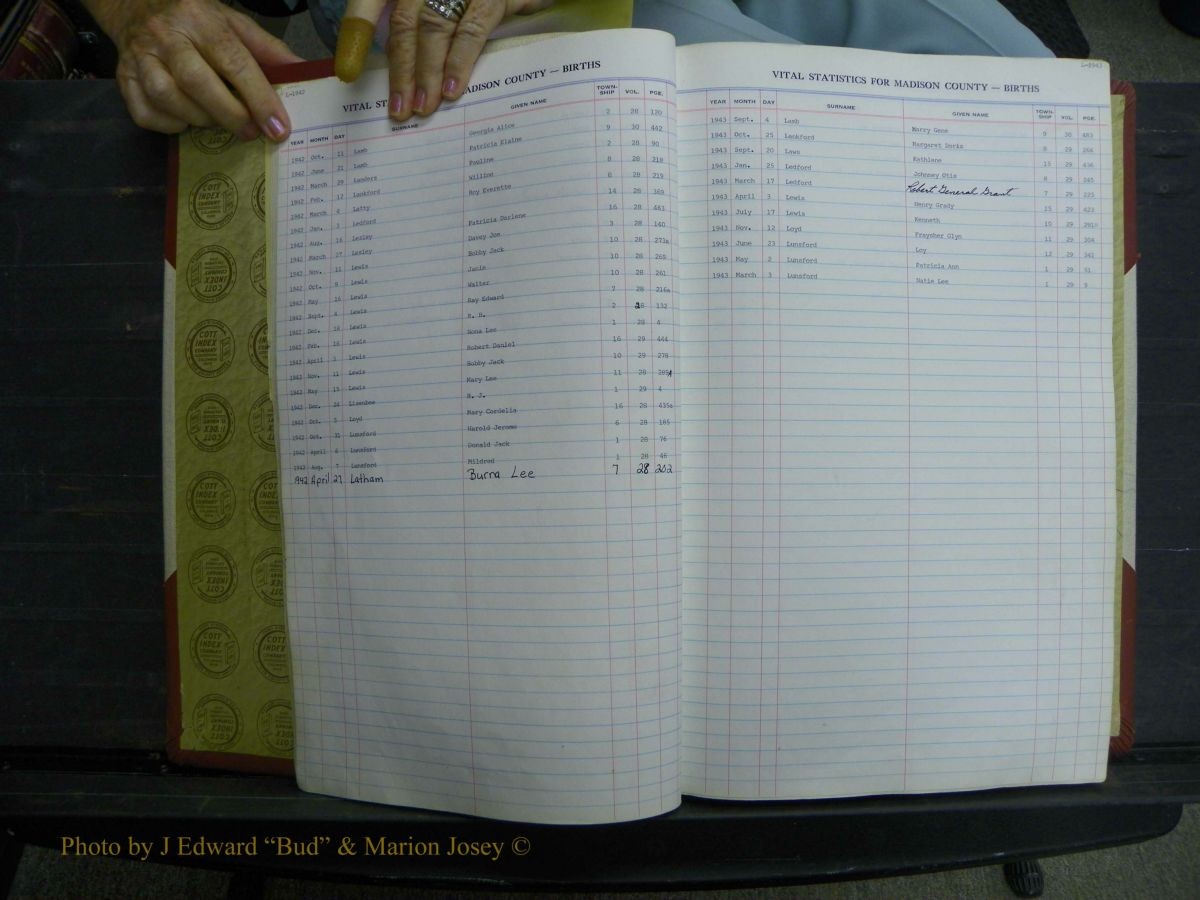 L-1942
VITAL STATISTICS FOR MADISON COUNTY — BIRTHS
YEAR MONTH DAY SURNAME GIVEN NAME TOWN-SHIP VOL. PGE.
1942 Oct. 11 Lamb Georgia Alice 2 28 120
1942 June 21 Lamb Patricia Elaine 9 30 442
1942 March 29 Landers Pauline 2 28 90
1942 Feb. 12 Lankford Willine 8 28 218
1942 March 4 Latty Roy Everette 8 28 219
1942 Jan. 1 Ledford 14 28 369
1942 Aug. 16 Lesley Patricia Darlene 16 28 483
1942 March 27 Lesley Davey Joe 3 28 140
1942 Nov. 11 Lewis Bobby Jack 10 28 273a
1942 Oct. 9 Lewis Janis 10 28 268
1942 May 16 Lewis Walter 10 28 261
1942 Sept. 4 Lewis Ray Edward 7 28 216a
1942 Dec. 18 Lewis R. H. 2 28 132
1942 Feb. 18 Lewis Nona Lee 1 28 4
1942 April 3 Lewis Robert Daniel 16 29 444
1942 Nov. 11 Lewis Bobby Jack 10 29 278
1942 May 15 Lewis Mary Lee 11 28 285A
1942 Dec. 24 Lisenbee R. J. 1 29 4
1942 Oct. 5 Loyd Mary Cordelia 16 28 435a
1942 Oct. 31 Lunsford Harold Jerome 6 28 185
1942 April 6 Lunsford Donald Jack 1 28 76
1942 Aug. 7 Lunsford Mildred 1 28 46
1942 April 27 Latham Burna Lee 7 28 202
L-1943
VITAL STATISTICS FOR MADISON COUNTY — BIRTHS
YEAR MONTH DAY SURNAME GIVEN NAME TOWN-SHIP VOL. PGE.
1943 Sept. 4 Lamb Harry Gene 9 30 483
1943 Oct. 25 Lankford Margaret Dorks 8 29 266
1943 Sept. 20 Laws Kathlene 15 29 436
1943 Jan. 25 Ledford Johnney Otis 8 29 245
1943 March 17 Ledford Robert General Grant 7 29 225
1943 April 3 Lewis Henry Grady 15 29 423
1943 July 17 Lewis Kenneth 10 29 291B
1943 Nov. 12 Loyd Praysher Glyn 11 29 304
1943 June 23 Lunsford Loy 12 29 341
1943 May 2 Lunsford Patricia Ann 1 29 51
1943 March 3 Lunsford Natie Lee 1 29 9
COTT INDEX COMPANY
Photo by J Edward “Bud” & Marion Josey ©